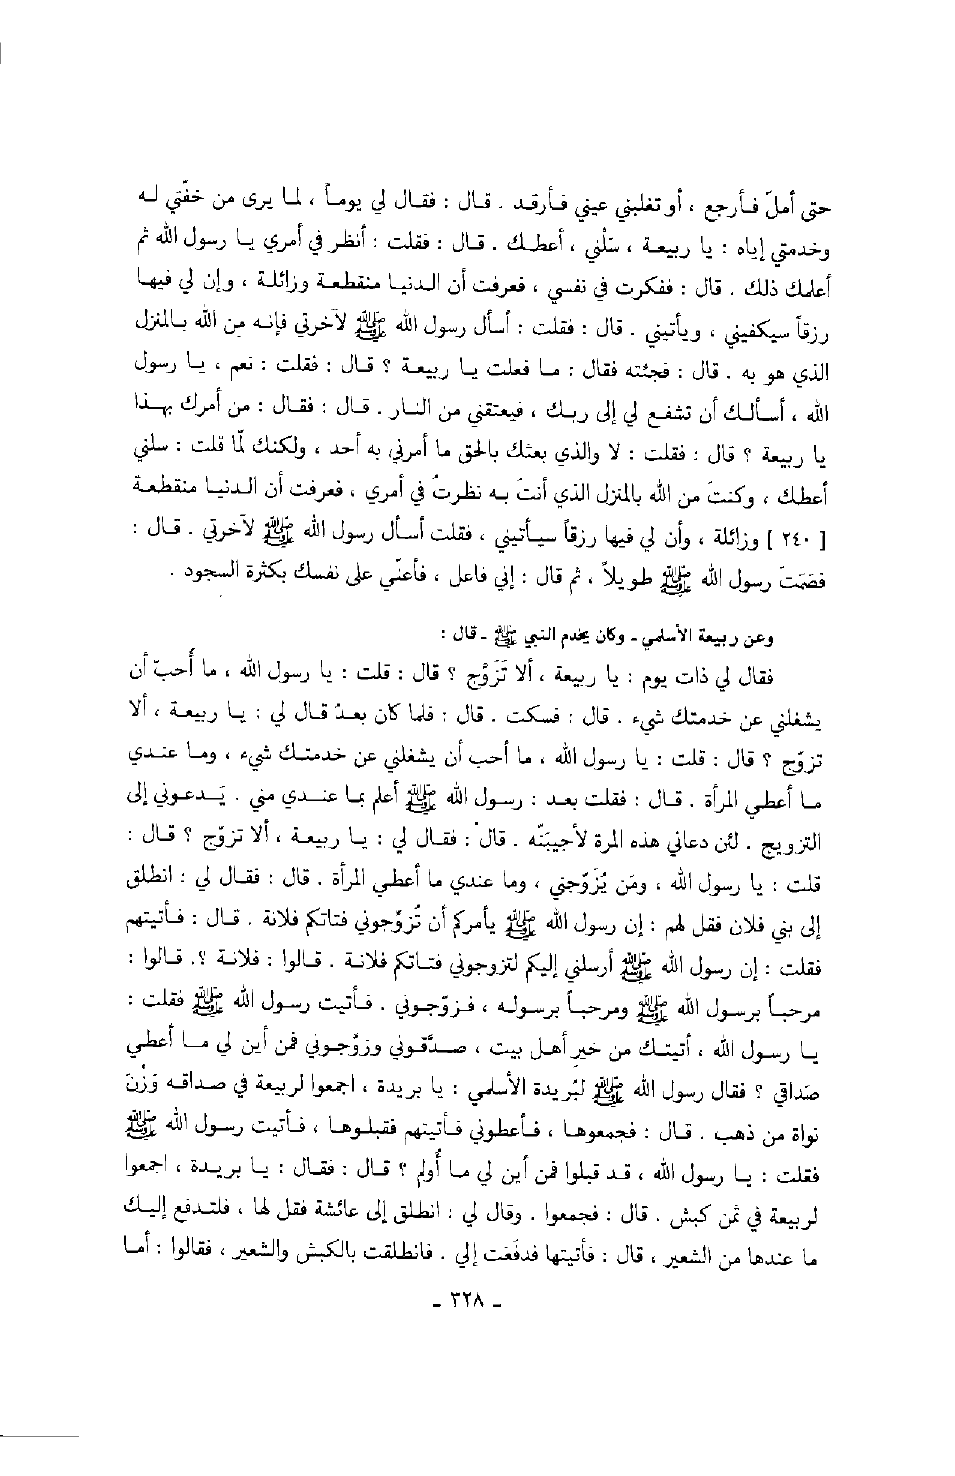 حتى أملّ فأرجع ، أو تغلبني عيني فأرقد . قال : فقال لي يوماً ، لما يرى من خفّتي له
وخدمتي إياه : يا ربيعة ، سَلْني ، أعطك . قال : فقلت : أنظر في أمري يا رسول الله ثم
أعلمك ذلك . قال : ففكرت في نفسي ، فعرفت أن الدنيا منقطعة وزائلة ، وإن لي فيها
رزقاً سيكفيني ، ويأتيني . قال : فقلت : أسأل رسول الله ﷺ لآخرتي فإنه من الله بالمنزل
الذي هو به . قال : فجئته فقال : ما فعلت يا ربيعة ؟ قال : فقلت : نعم ، يا رسول
الله ، أسألك أن تشفع لي إلى ربك ، فيعتقني من النار . قال : فقال : من أمرك بهذا
يا ربيعة ؟ قال : فقلت : لا والذي بعثك بالحق ما أمرني به أحد ، ولكنك لمّا قلت : سلني
أعطك ، وكنتَ من الله بالمنزل الذي أنتَ به نظرتُ في أمري ، فعرفت أن الدنيا منقطعة
[ ٢٤٠ ] وزائلة ، وأن لي فيها رزقاً سيأتيني ، فقلت أسأل رسول الله ﷺ لآخرتي . قال :
فصَمَتَ رسول الله ﷺ طويلاً ، ثم قال : إني فاعل ، فأعنّي على نفسك بكثرة السجود .
وعن ربيعة الأسلمي - وكان يخدم النبي ﷺ - قال :
فقال لي ذات يوم : يا ربيعة ، ألا تَزَوَّج ؟ قال : قلت : يا رسول الله ، ما أُحبّ أن
يشغلني عن خدمتك شيء . قال : فسكت . قال : فلما كان بعدُ قال لي : يا ربيعة ، ألا
تزوّج ؟ قال : قلت : يا رسول الله ، ما أحب أن يشغلني عن خدمتك شيء ، وما عندي
ما أعطي المرأة . قال : فقلت بعد : رسول الله ﷺ أعلم بما عندي مني . يَدعوني إلى
التزويج . لئن دعاني هذه المرة لأجيبنّه . قال : فقال لي : يا ربيعة ، ألا تزوّج ؟ قال :
قلت : يا رسول الله ، ومَن يُزَوّجني ، وما عندي ما أعطي المرأة . قال : فقال لي : انطلق
إلى بني فلان فقل لهم : إن رسول الله ﷺ يأمركم أن تُزوّجوني فتاتكم فلانة . قال : فأتيتهم
فقلت : إن رسول الله ﷺ أرسلني إليكم لتزوجوني فتاتكم فلانة . قالوا : فلانة ؟. قالوا :
مرحباً برسول الله ﷺ ومرحباً برسوله ، فزوّجوني . فأتيت رسول الله ﷺ فقلت :
يا رسول الله ، أتيتك من خير أهل بيت ، صدّقوني وزوّجوني فمن أين لي ما أعطي
صَداقي ؟ فقال رسول الله ﷺ لبُريدة الأسلمي : يا بريدة ، اجمعوا لربيعة في صداقه وَزْنَ
نواة من ذهب . قال : فجمعوها ، فأعطوني فأتيتهم فقبلوها ، فأتيت رسول الله ﷺ
فقلت : يا رسول الله ، قد قبلوا فمن أين لي ما أُولم ؟ قال : فقال : يا بريدة ، اجمعوا
لربيعة في ثمن كبش . قال : فجمعوا . وقال لي : انطلق إلى عائشة فقل لها ، فلتدفع إليك
ما عندها من الشعير ، قال : فأتيتها فدفَعَت إلي . فانطلقت بالكبش والشعير ، فقالوا : أما
- ٣٢٨ -